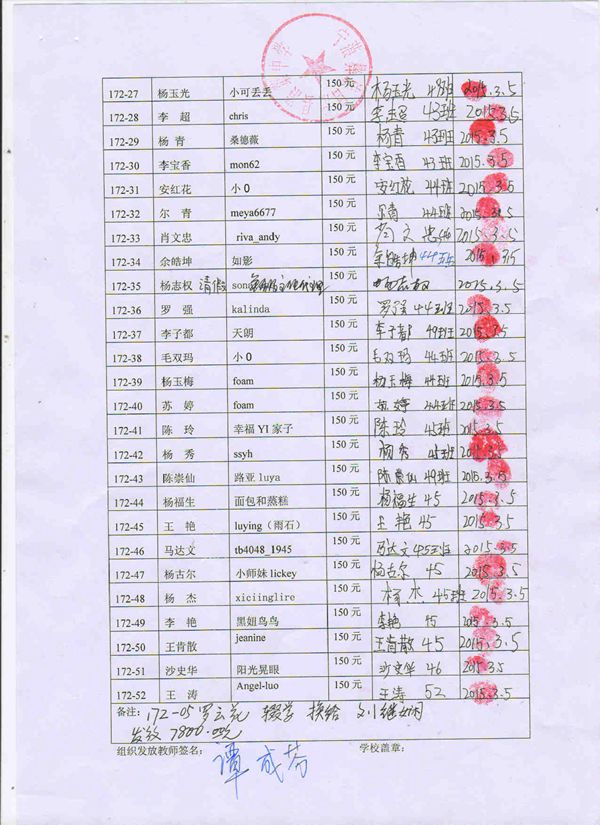 172-27 杨玉光 小可丢丢 150 元 杨玉光 48班 2015.3.5
172-28 李 超 chris 150 元 李超 43班 2015.3.5
172-29 杨 青 桑德薇 150 元 杨青 43班 2015.3.5
172-30 李宝香 mon62 150 元 李宝香 43班 2015.3.5
172-31 安红花 小 0 150 元 安红花 44班 2015.3.5
172-32 尔 青 meya6677 150 元 尔青 44班 2015.3.5
172-33 肖文忠 riva_andy 150 元 肖文忠 2015.3.5
172-34 余皓坤 如影 150 元 余皓坤 44班 2015.3.5
172-35 杨志权 请假 150 元 杨志权 2015.3.5
172-36 罗 强 kalinda 150 元 罗强 44班 2015.3.5
172-37 李子都 天朗 150 元 李子都 49班 2015.3.5
172-38 毛双玛 小 0 150 元 毛双玛 44班 2015.3.5
172-39 杨玉梅 foam 150 元 杨玉梅 44班 2015.3.5
172-40 苏 婷 foam 150 元 苏婷 44班 2015.3.5
172-41 陈 玲 幸福 YI 家子 150 元 陈玲 45班 2015.3.5
172-42 杨 秀 ssyh 150 元 杨秀 45班 2015.3.5
172-43 陈崇仙 路亚 luya 150 元 陈崇仙 49班 2015.3.5
172-44 杨福生 面包和蒸糕 150 元 杨福生 45 2015.3.5
172-45 王 艳 luying（雨石） 150 元 王艳 45 2015.3.5
172-46 马达文 tb4048_1945 150 元 马达文 45班 2015.3.5
172-47 杨古尔 小师妹 lickey 150 元 杨古尔 45 2015.3.5
172-48 杨 杰 xiciinglire 150 元 杨杰 45班 2015.3.5
172-49 李 艳 黑妞鸟鸟 150 元 李艳 45 2015.3.5
172-50 王肯散 jeanine 150 元 王肯散 45 2015.3.5
172-51 沙史华 阳光晃眼 150 元 沙史华 46 2015.3.5
172-52 王 涛 Angel-luo 150 元 王涛 52 2015.3.5
备注：172-05 罗云花 辍学 换给 刘继娴
发放 7800.元
组织发放教师签名： 谭成芬 学校盖章：